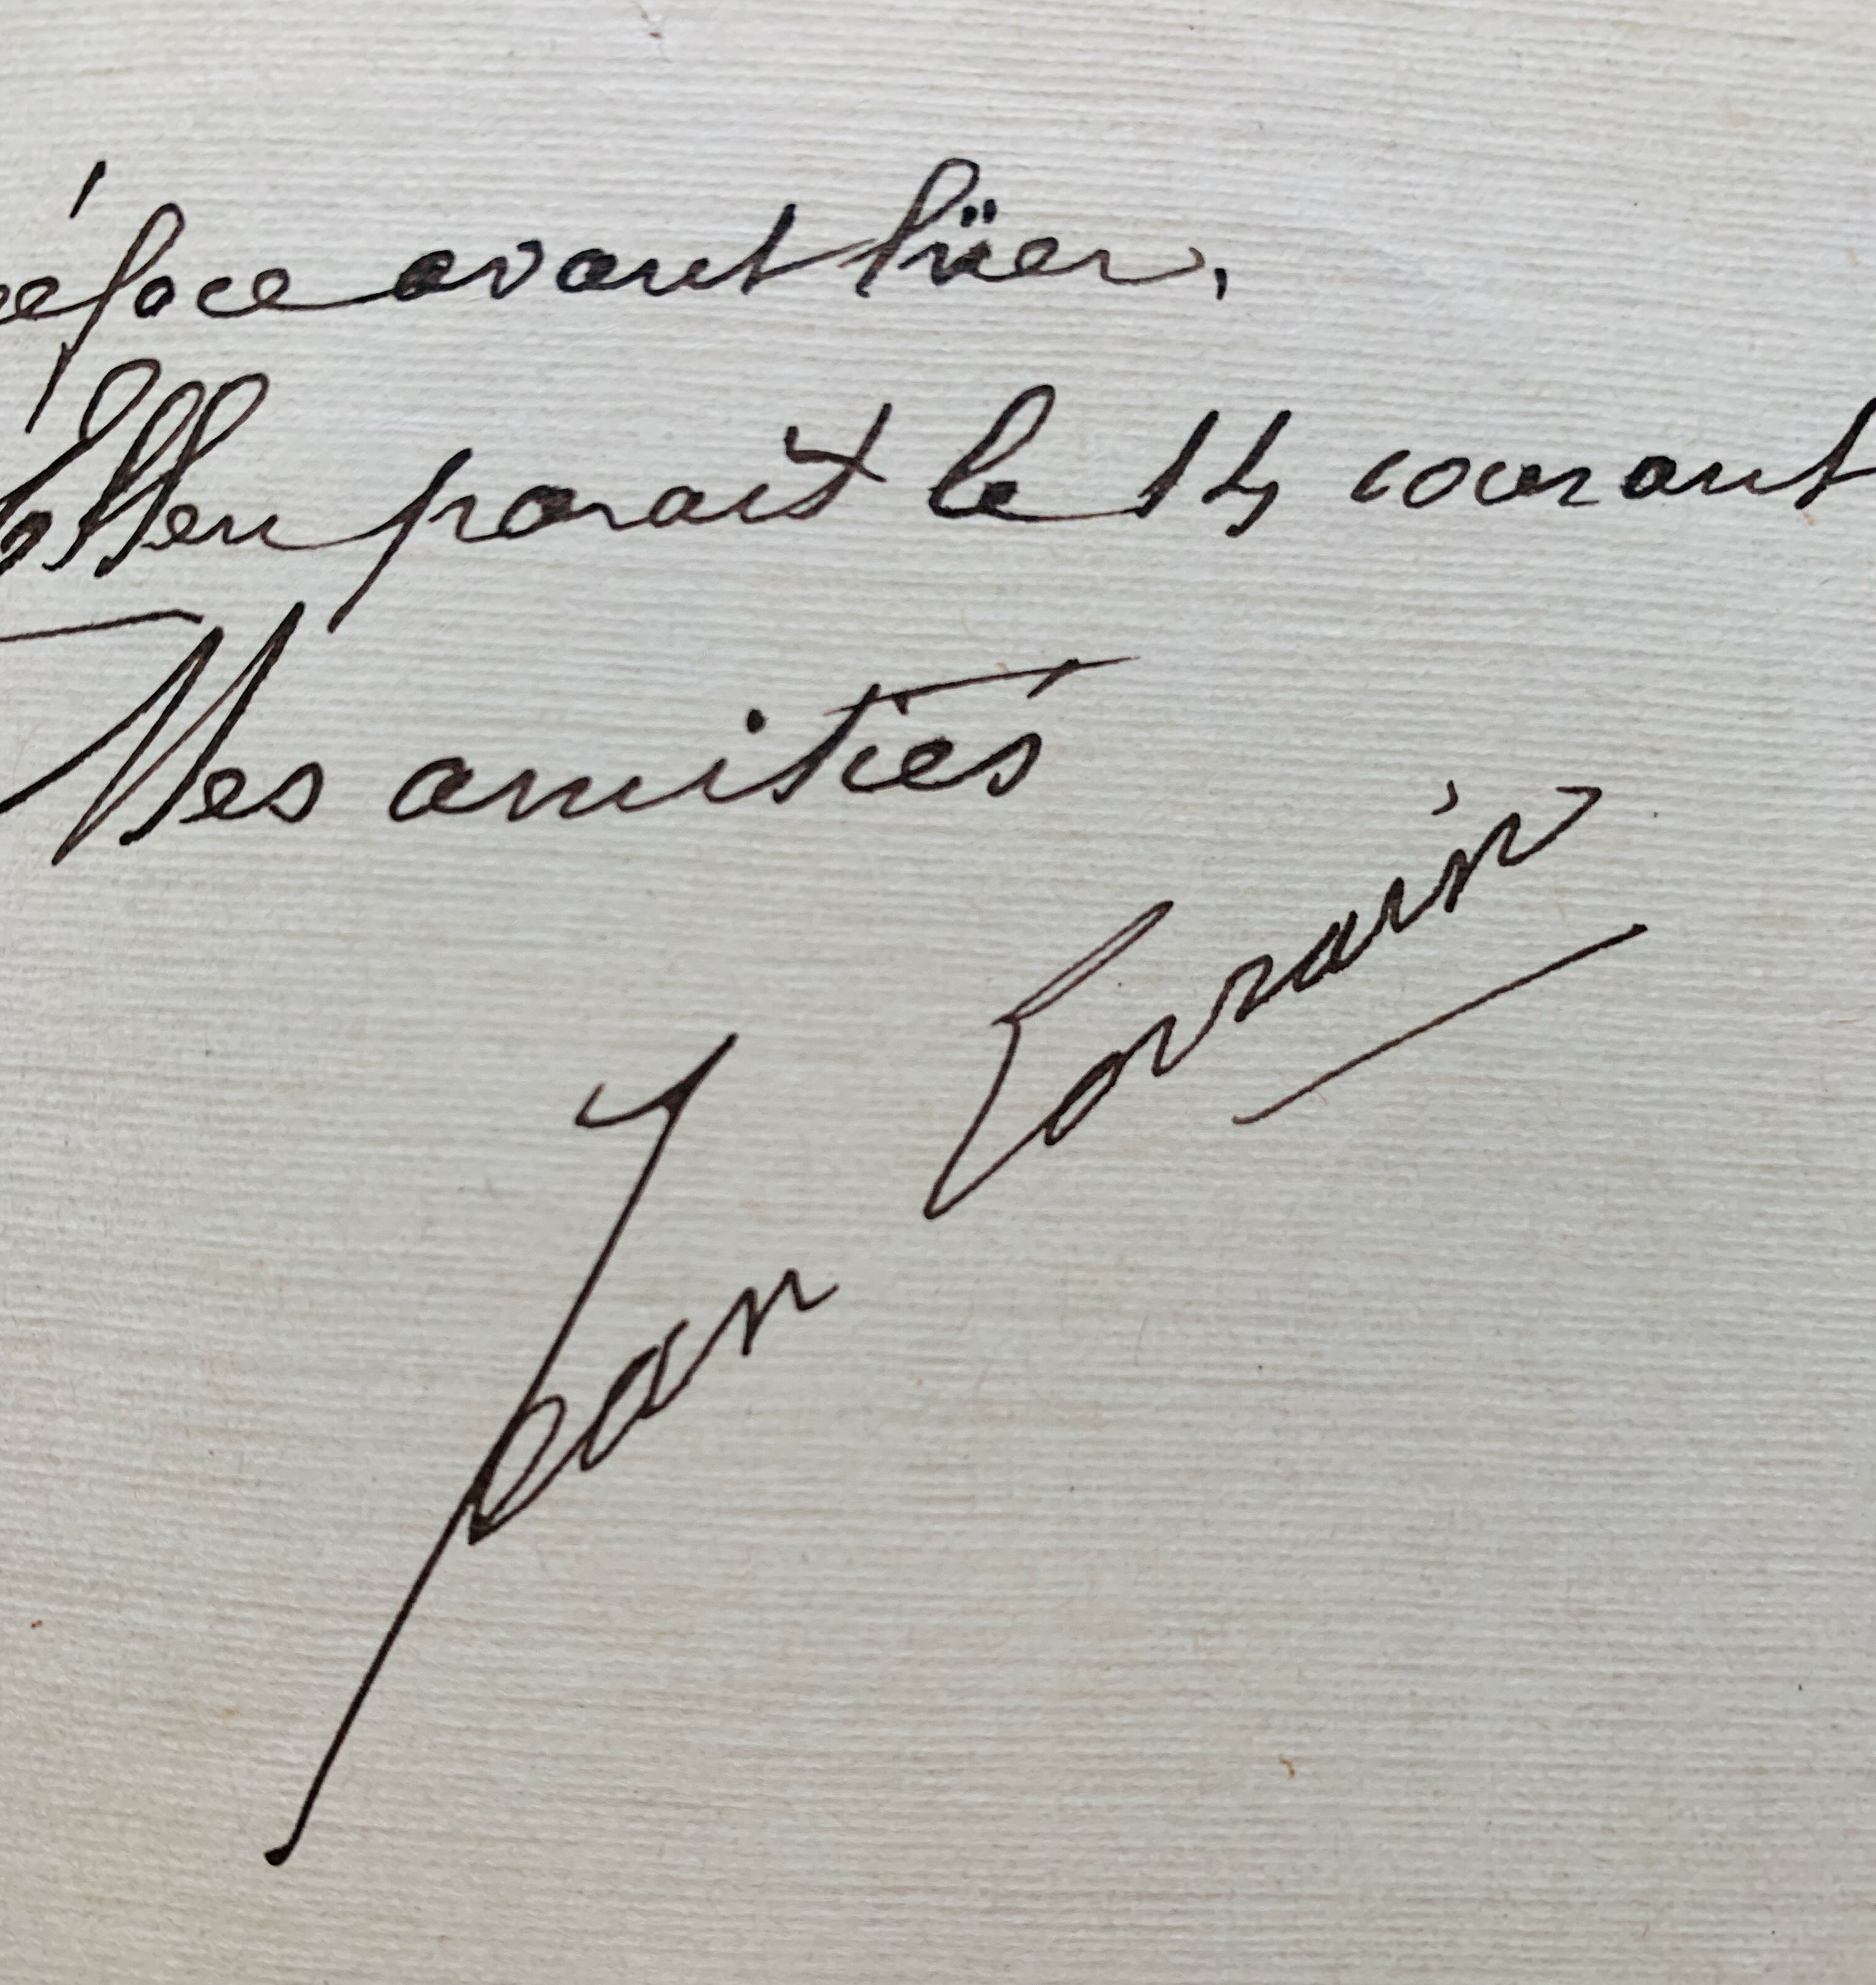 éface avant hïer.
parait le 14 courant
Mes amitiés
Jean Lorrain